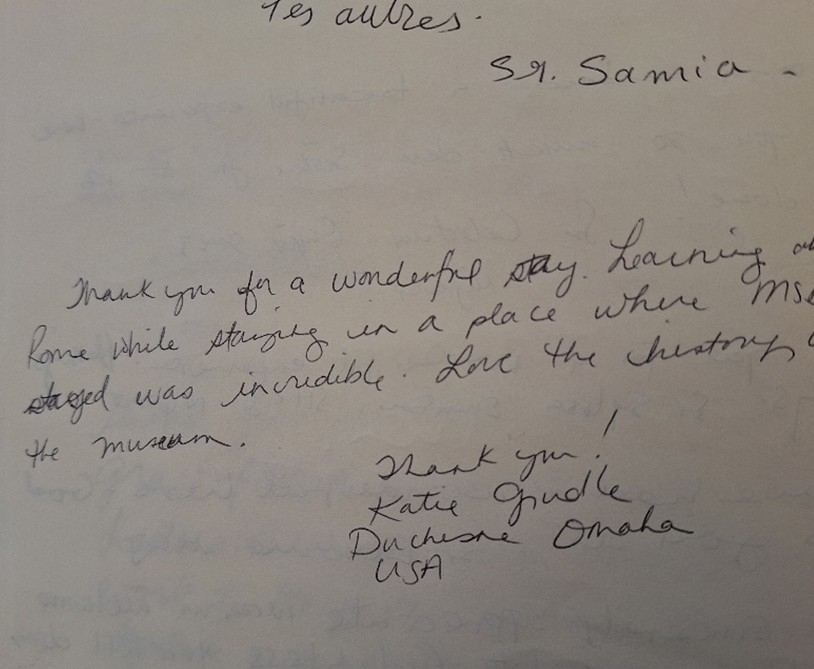 les autres.
Sr. Samia -
Thank you for a wonderful stay. Learning
Rome while staying in a place where MS
stayed was incredible. Love the history
the museum.
Thank you!
Katie
Duchesne Omaha
USA